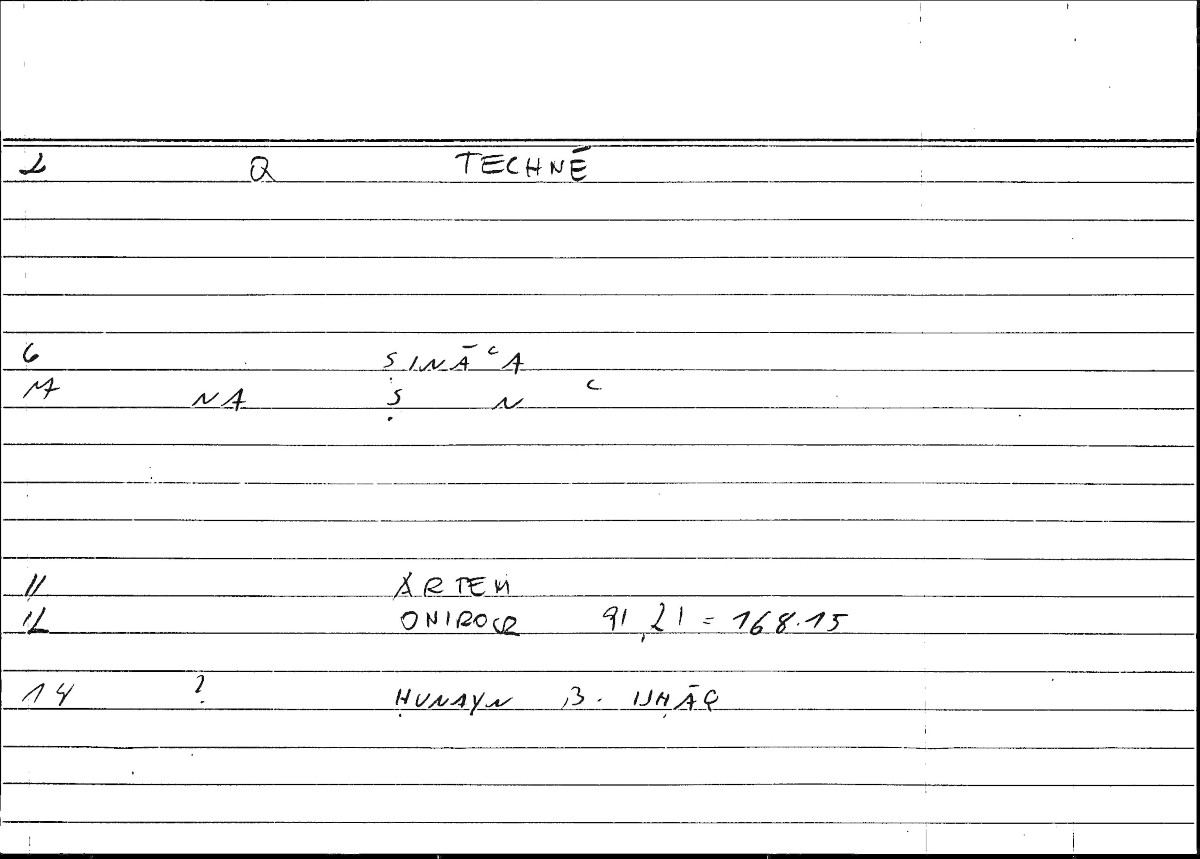 2 Q TECHNĒ
6 ṢINĀʿA
M NA Ṣ N ʿ
11 ARTEM
12 ONIROCR 91,21 = 168.15
14 ? ḤUNAYN B. ISḤĀQ